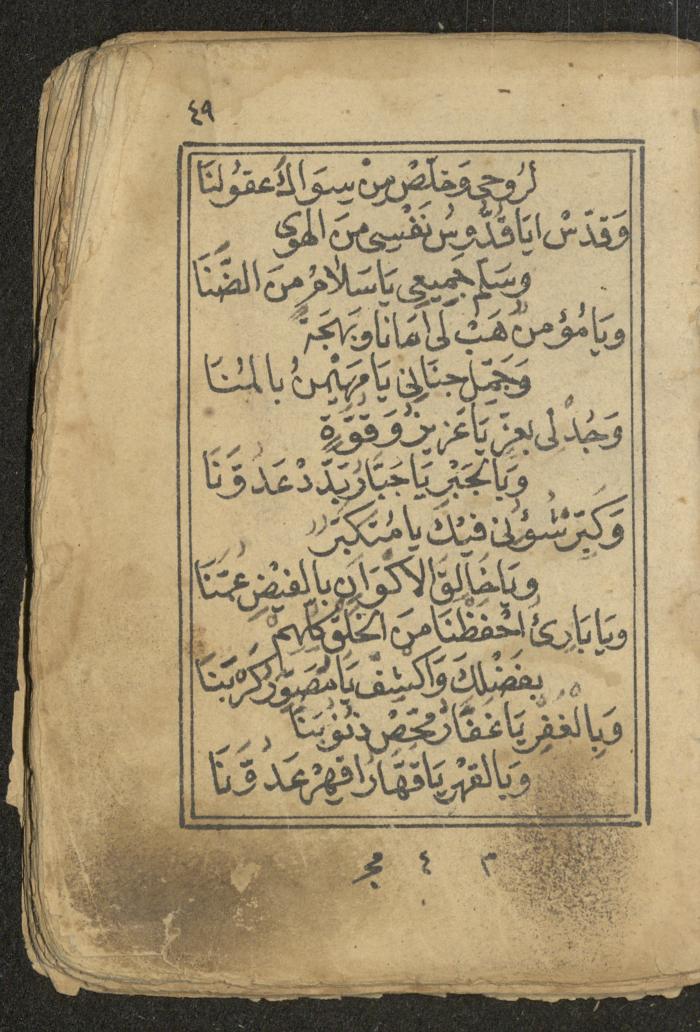 ٤٩
لرُوحِي وَخَلِّصْ مِنْ سِوَاكَ عُقُولَنَا
وَقَدِّسْ ايَا قُدُّوسُ نَفْسِي مِنَ الهَوى
وسَلِّم جَمِيعِي يَا سَلَامُ مِنَ الضَّنَا
ويَا مُؤمِنُ هَبْ لِي أَمَانًا وبَهجَةً
وَجَمِّل جنَانِي يَا مُهَيْمِنُ بالمُنَا
وَجُدْ لِي بعِزٍّ يَا عَزِيزُ وَقُوَّةٍ
وَبِالجَبْرِ يَا جَبَّارُ بَدِّدْ عَدُوَّنَا
وَكَبِّر شُؤُنِي فيْكَ يا مُتكَبِّرُ
ويَا خَالِقَ الاكْوَانِ بِالفَيْضِ عُمَّنَا
ويَا بَارِئُ احْفَظْنَا مِنَ الخَلْقِ كلِّهِمْ
بِفَضْلِكَ وَاكْشِفْ يَا مُصَوِّرُ كَرْبَنَا
وَبِالغَفْرِ يَا غَفَّارُ مَحِّصْ ذنُوْبَنَا
وَبالقَهْرِ يَا قَهَّارُ اقْهِرْ عَدُوَّنَا
٣ ٤